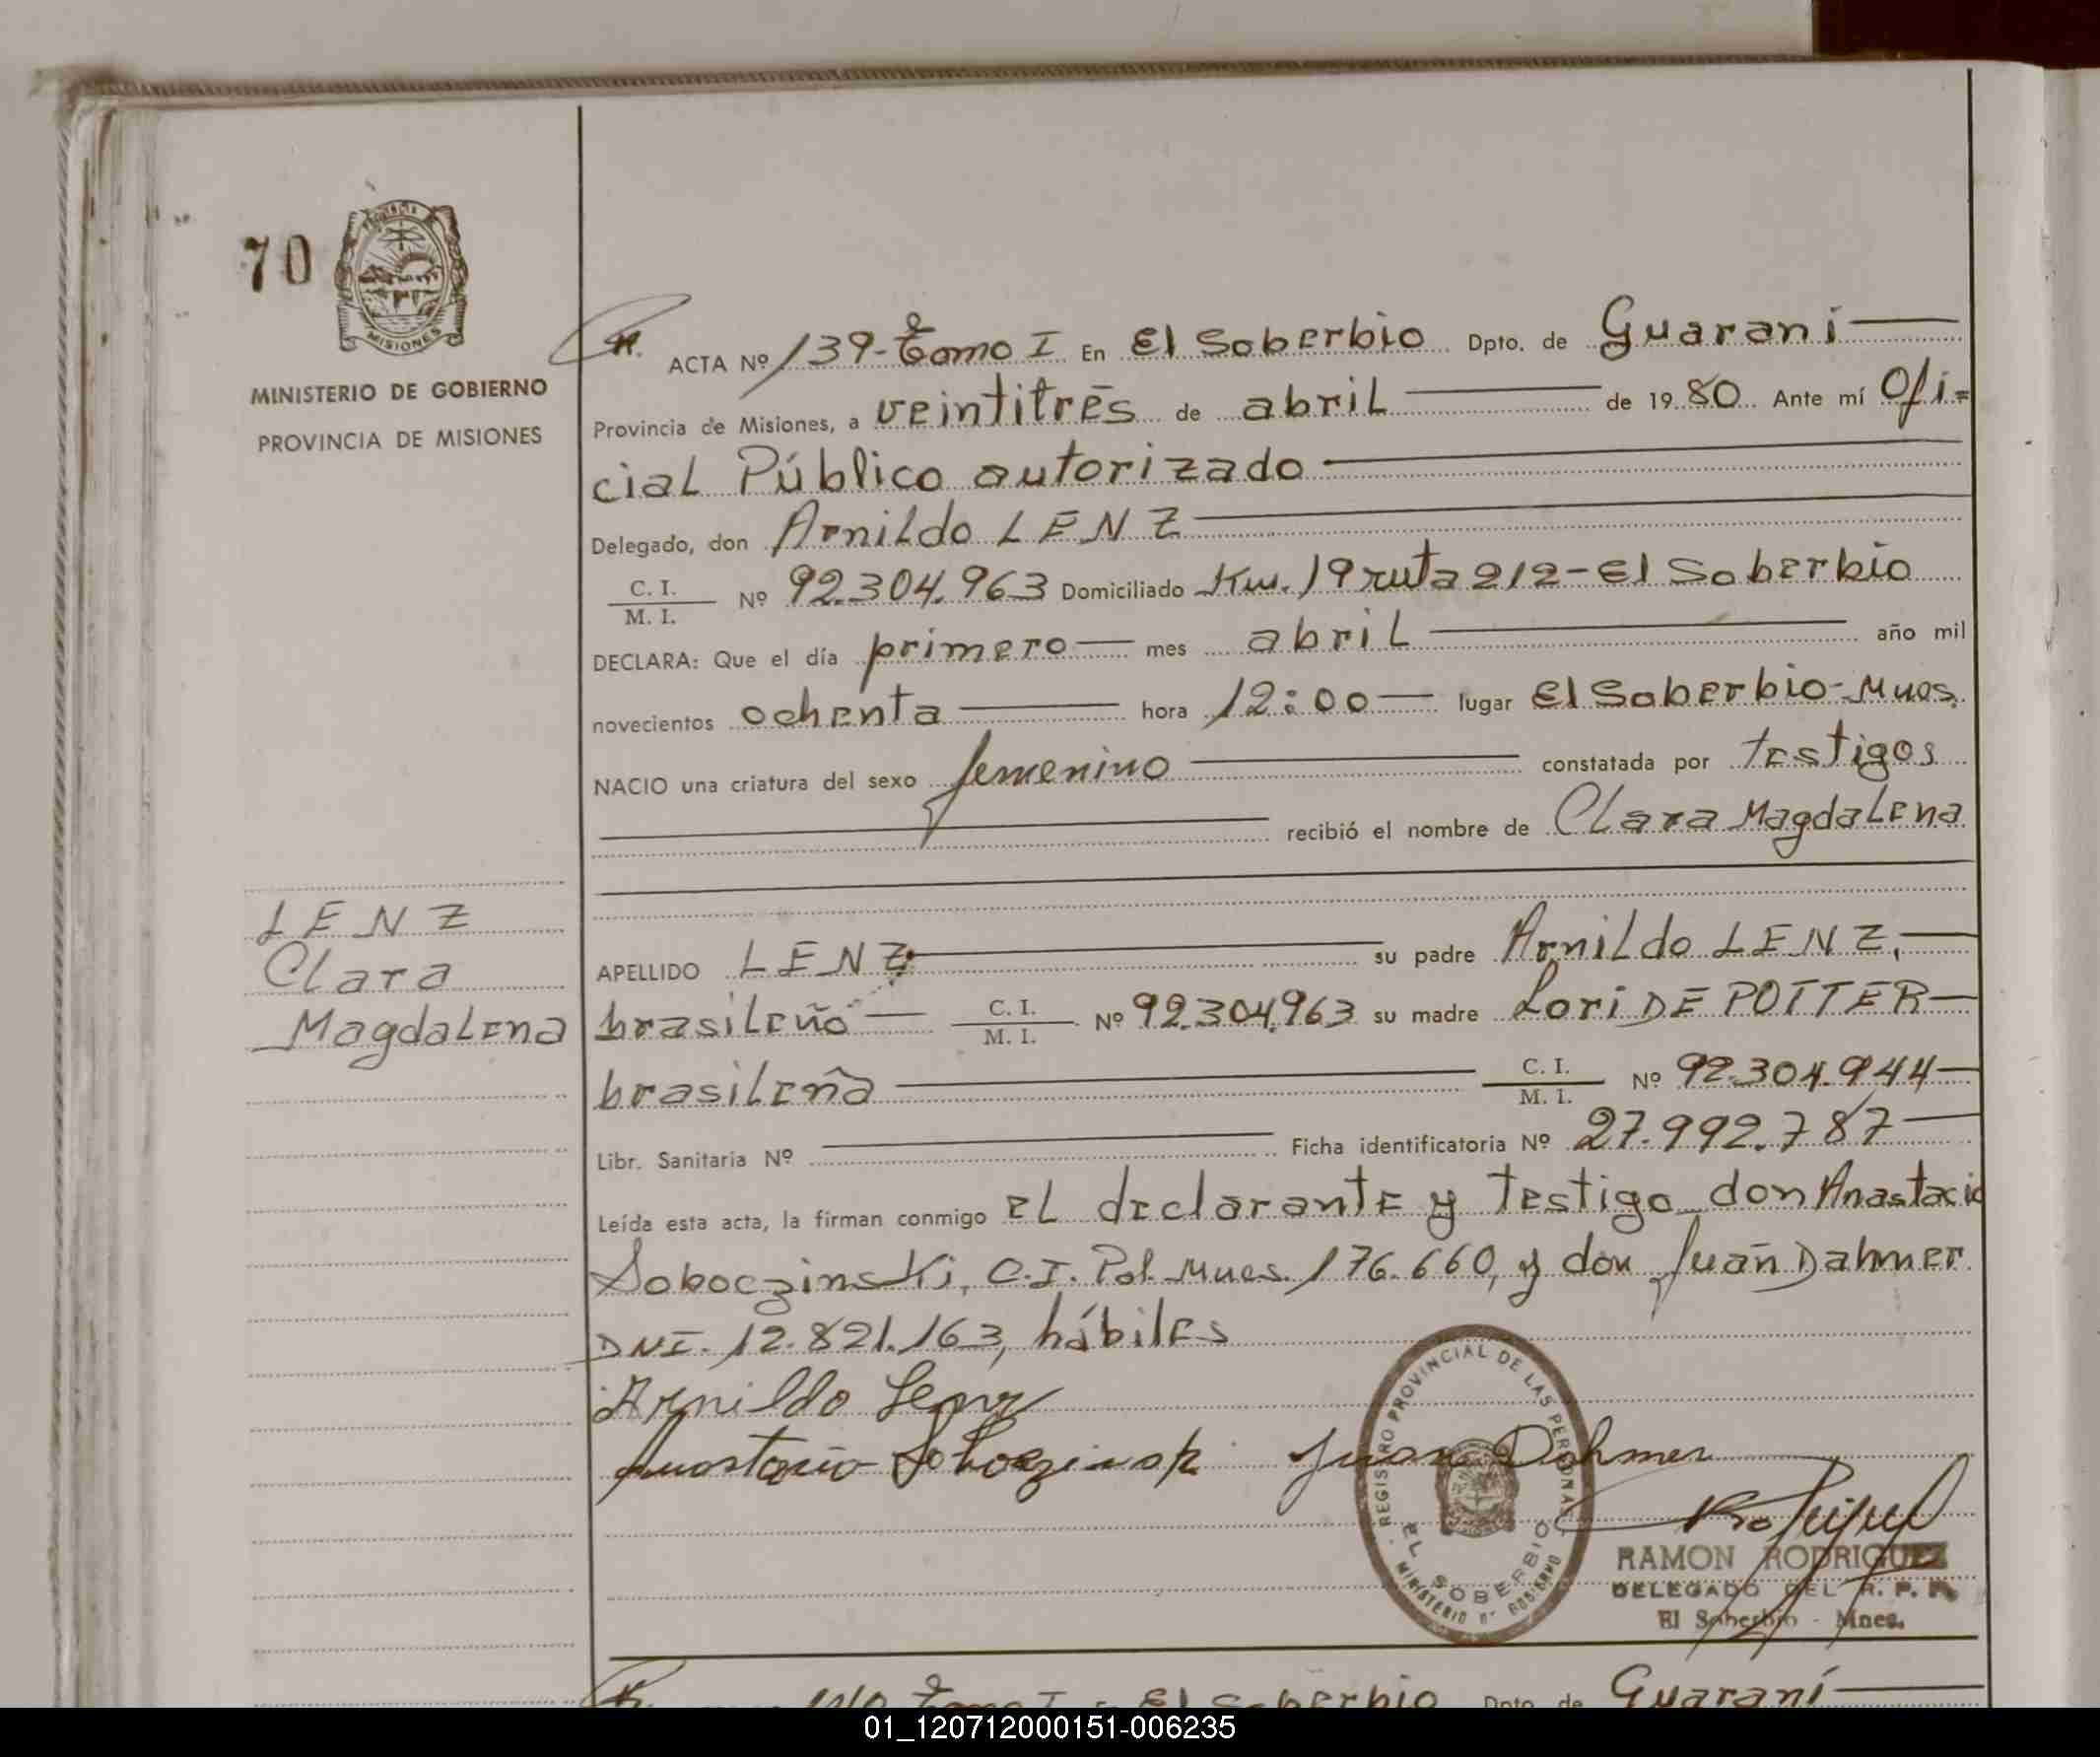 70
MISIONES
MINISTERIO DE GOBIERNO
PROVINCIA DE MISIONES
ACTA Nº 139- Tomo I En El Soberbio Dpto. de Guaraní
Provincia de Misiones, a veintitrés de abril de 1980 Ante mí Ofi=
cial Público autorizado
Delegado, don Arnildo LENZ
C. I.
M. I. Nº 92.304.963 Domiciliado Km. 19 ruta 212-El Soberbio
DECLARA: Que el día primero mes abril año mil
novecientos ochenta hora 12:00 lugar El Soberbio-Mnes.
NACIO una criatura del sexo femenino constatada por testigos
recibió el nombre de Clara Magdalena
LENZ
Clara
Magdalena
APELLIDO LENZ su padre Arnildo LENZ,
brasileño C. I.
M. I. Nº 92.304.963 su madre Lori DE POTTER
brasileña C. I.
M. I. Nº 92.304.944
Libr. Sanitaria Nº Ficha identificatoria Nº 27.992.787
Leída esta acta, la firman conmigo el declarante y testigo don Anastacio
Soboczinski, C.I. Pol. Mnes. 176.660, y don Juan Dahmer
DNI. 12.821.163, hábiles
Arnildo Lenz
Anastacio Soboczinski Juan Dahmer
REGISTRO PROVINCIAL DE LAS PERSONAS
EL SOBERBIO
MINISTERIO DE GOBIERNO
RAMON RODRIGUEZ
DELEGADO DEL R. P. P.
El Soberbio - Mnes.
Tomo I En El Soberbio Dpto. de Guaraní
01_120712000151-006235